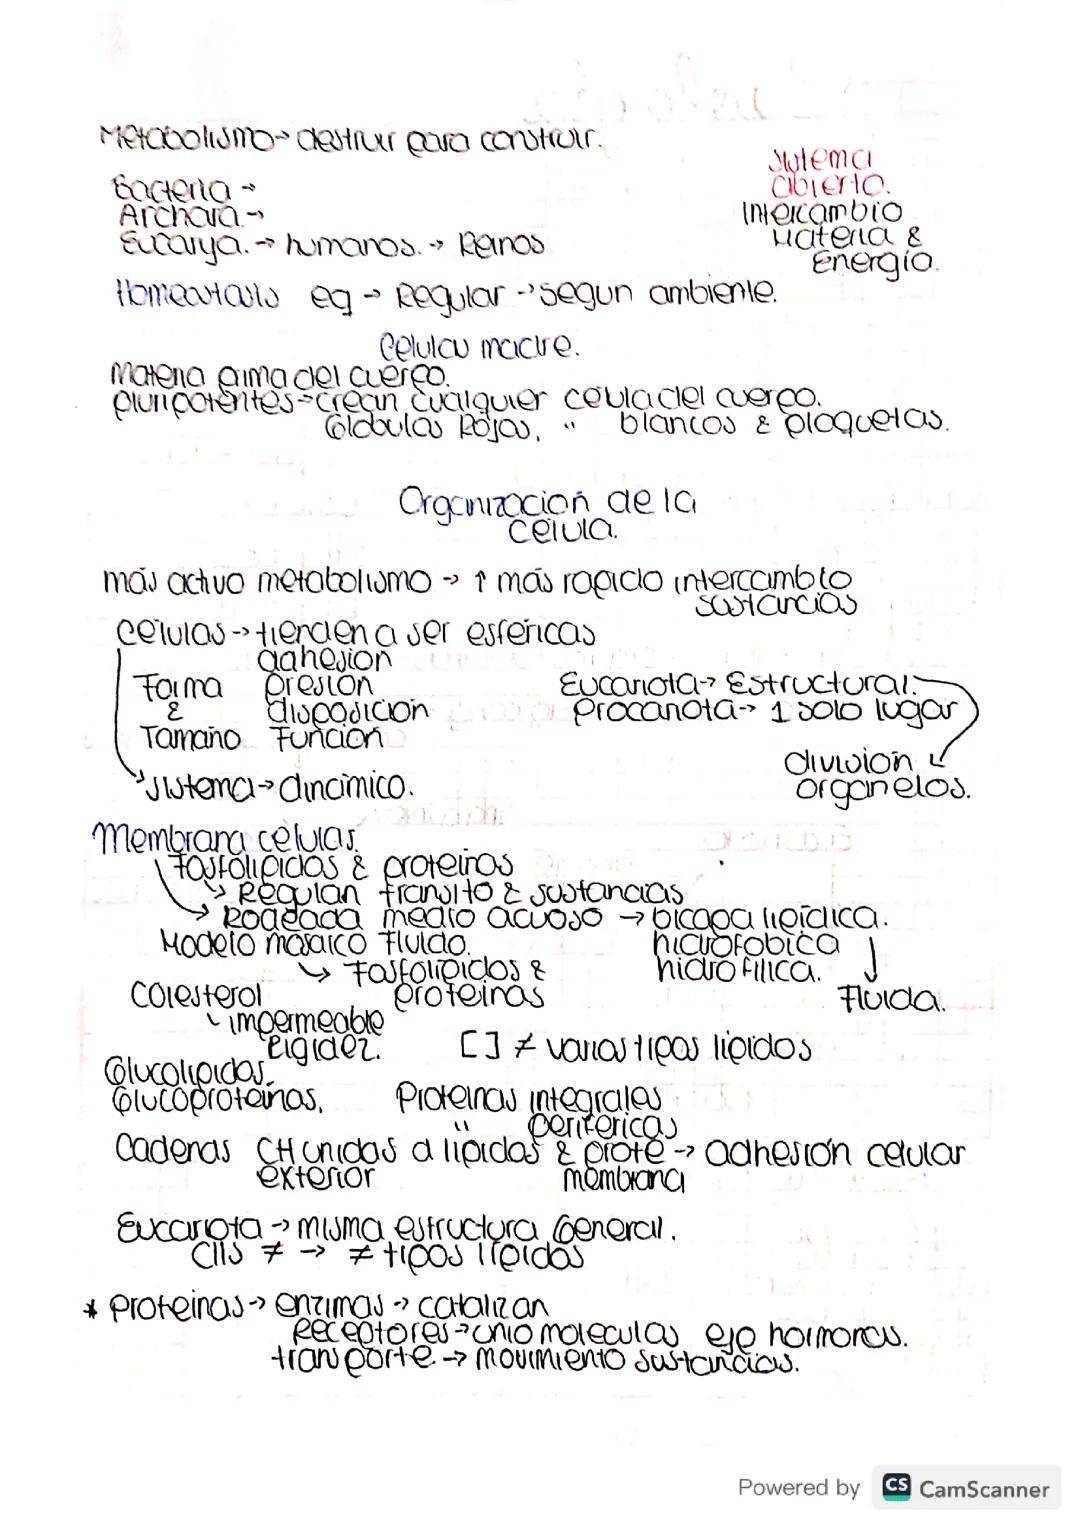 Metabolismo → destruir para construir.
Sistema
abierto.
Intercambio
Materia &
Energia.
Bacteria →
Archara →
Eucarya. → humanos. → Reinos
Homeostasis eq → Regular → segun ambiente.
Celulas madre.
Materia prima del cuerpo.
pluripotentes → crean cualquier celula del cuerpo.
Globulos Rojos, " blancos & plaquetas.
Organizacion de la
celula.
más activo metabolismo → ↑ más rapido intercambio
sustancias
Celulas → tienden a ser esfericas
adhesion
Forma presion
& disposicion
Tamaño Funcion
Sistema → dinamico.
Eucariota → Estructural.
Procariota → 1 solo lugar
division
organelos.
Membrana celular
Fosfolipidos & proteinas
Regulan transito & sustancias
Rodeada medio acuoso → bicapa lipidica.
hidrofobica
hidrofilica.
Fluida.
Modelo mosaico Fluido.
Fosfolipidos &
proteinas
Colesterol
impermeable
Rigidez.
[ ] ≠ varios tipos lipidos
Glucolipidos.
Glucoproteinas.
Proteinas integrales
" perifericas
Cadenas CH unidas a lipidos & prote → adhesión celular
exterior membrana
Eucariota → misma estructura General.
Clls ≠ → ≠ tipos lipidos
* Proteinas → enzimas → catalizan
Receptores → unio moleculas eje hormonas.
transporte → movimiento sustancias.
Powered by CS CamScanner